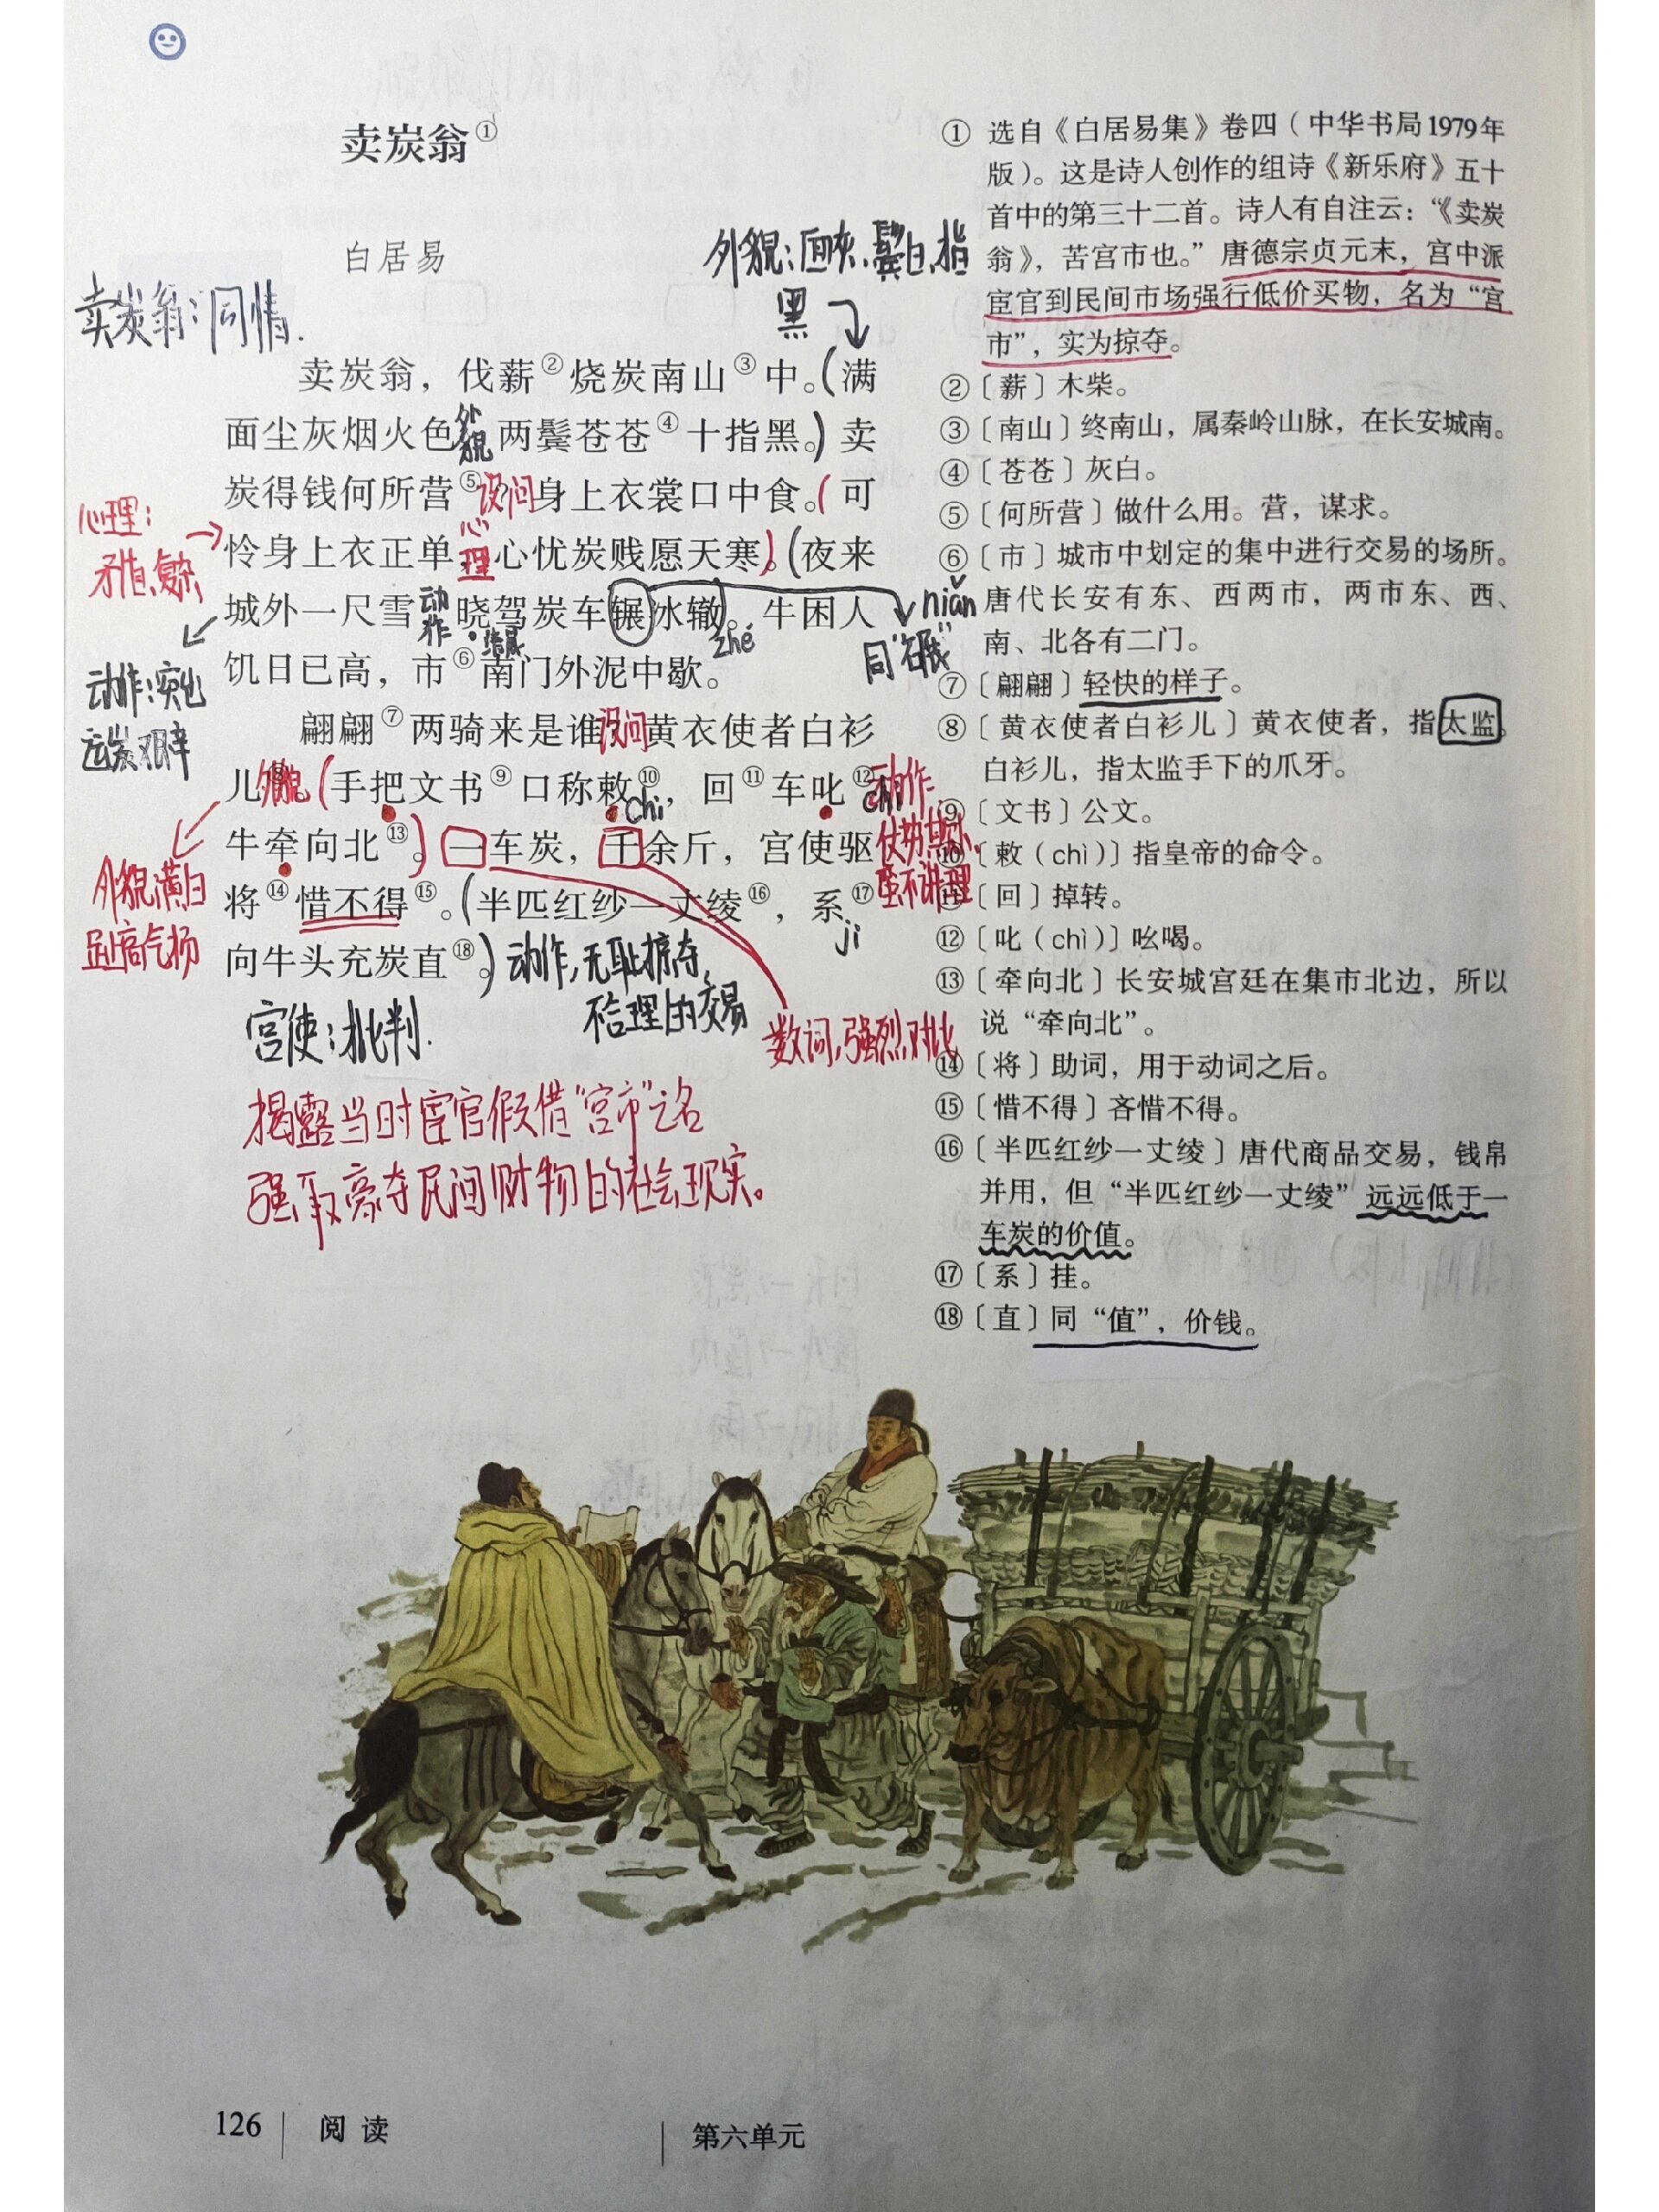 卖炭翁①
白居易
卖炭翁：同情.
外貌：面灰、鬓白、指
黑
卖炭翁，伐薪②烧炭南山③中。(满
面尘灰烟火色外貌两鬓苍苍④十指黑。)卖
炭得钱何所营⑤？设问身上衣裳口中食。(可
心理：
矛盾、复杂
怜身上衣正单心理心忧炭贱愿天寒)。(夜来
城外一尺雪动作晓驾炭车辗冰辙。牛困人
zhé
niǎn
同“碾”
饥日已高，市⑥南门外泥中歇。
动作：突出
运炭艰辛
翩翩⑦两骑来是谁设问黄衣使者白衫
儿⑧外貌。(手把文书⑨口称敕⑩，回⑪车叱⑫
chì
chì
动作，
仗势其外、
蛮不讲理
牛牵向北⑬。)一车炭，千余斤，宫使驱
外貌：黄白
趾高气扬
将⑭惜不得⑮。(半匹红纱一丈绫⑯，系⑰
jì
向牛头充炭直⑱。)动作，无耻掠夺，
不合理的交易
数词，强烈对比
宫使：批判.
揭露当时宦官假借“宫市”之名
强取豪夺民间财物的社会现实。
① 选自《白居易集》卷四（中华书局1979年
版）。这是诗人创作的组诗《新乐府》五十
首中的第三十二首。诗人有自注云：“《卖炭
翁》，苦宫市也。”唐德宗贞元末，宫中派
宦官到民间市场强行低价买物，名为“宫
市”，实为掠夺。
②〔薪〕木柴。
③〔南山〕终南山，属秦岭山脉，在长安城南。
④〔苍苍〕灰白。
⑤〔何所营〕做什么用。营，谋求。
⑥〔市〕城市中划定的集中进行交易的场所。
唐代长安有东、西两市，两市东、西、
南、北各有二门。
⑦〔翩翩〕轻快的样子。
⑧〔黄衣使者白衫儿〕黄衣使者，指太监。
白衫儿，指太监手下的爪牙。
⑨〔文书〕公文。
⑩〔敕（chì）〕指皇帝的命令。
⑪〔回〕掉转。
⑫〔叱（chì）〕吆喝。
⑬〔牵向北〕长安城宫廷在集市北边，所以
说“牵向北”。
⑭〔将〕助词，用于动词之后。
⑮〔惜不得〕吝惜不得。
⑯〔半匹红纱一丈绫〕唐代商品交易，钱帛
并用，但“半匹红纱一丈绫”远远低于一
车炭的价值。
⑰〔系〕挂。
⑱〔直〕同“值”，价钱。
126 阅读 第六单元